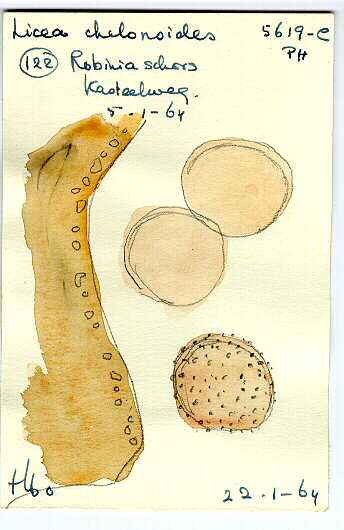 Licea chelonoides 5619-C
PH
122 Robinia schors
Kasteelweg.
5-1-64
22-1-64